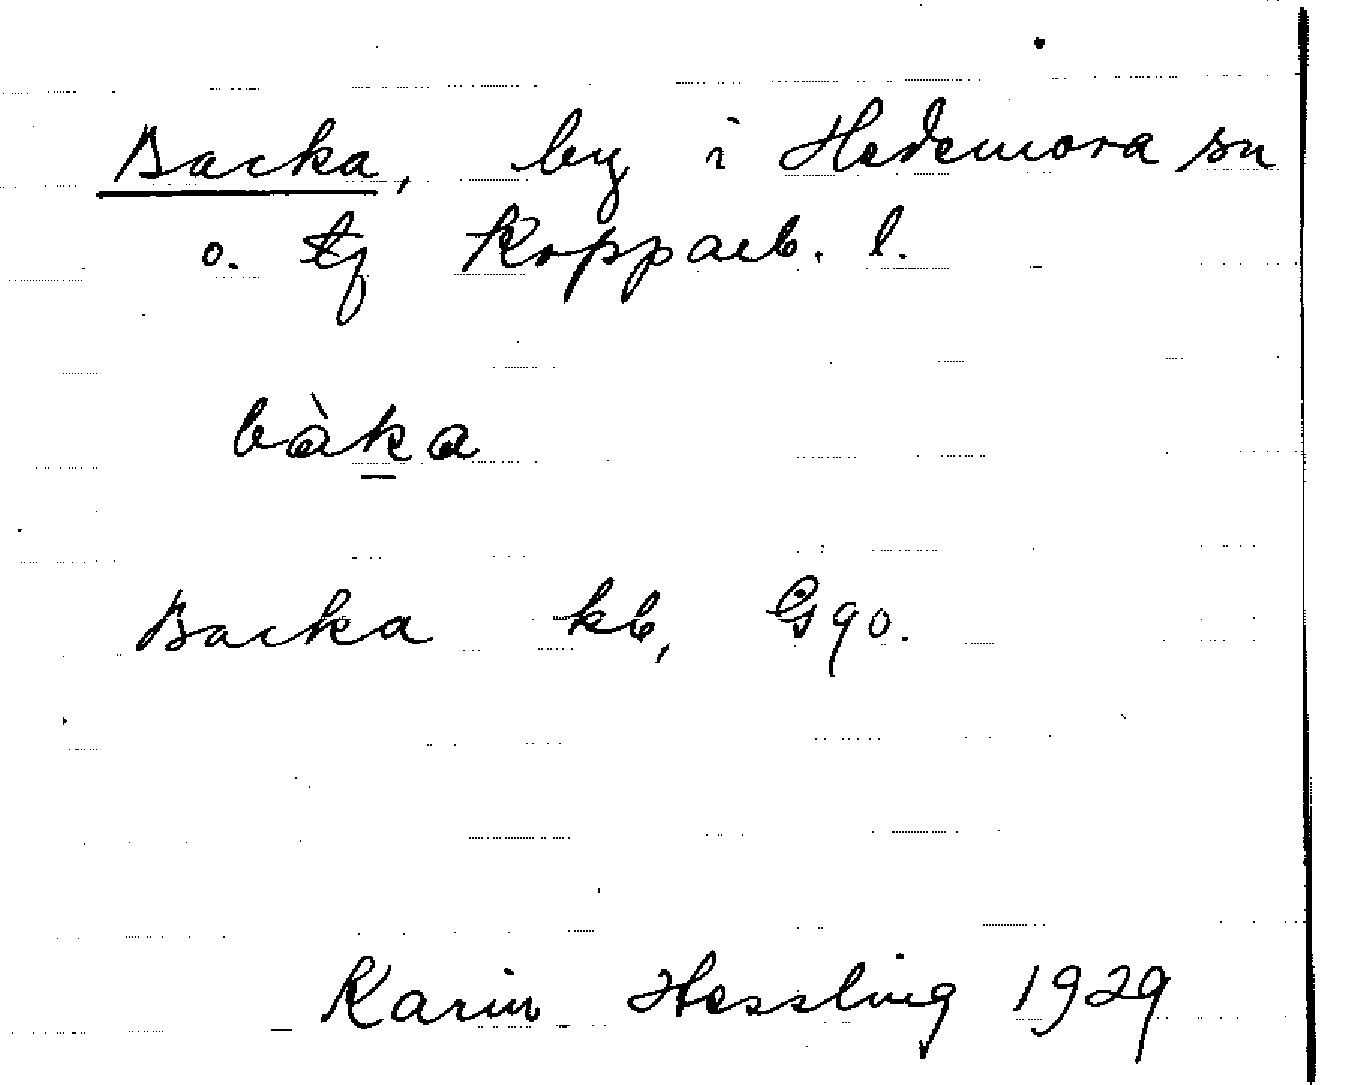 Backa, by i Hedemora sn
o. tg Kopparb. l.
bàka
Backa kb, G90.
Karin Hessling 1929